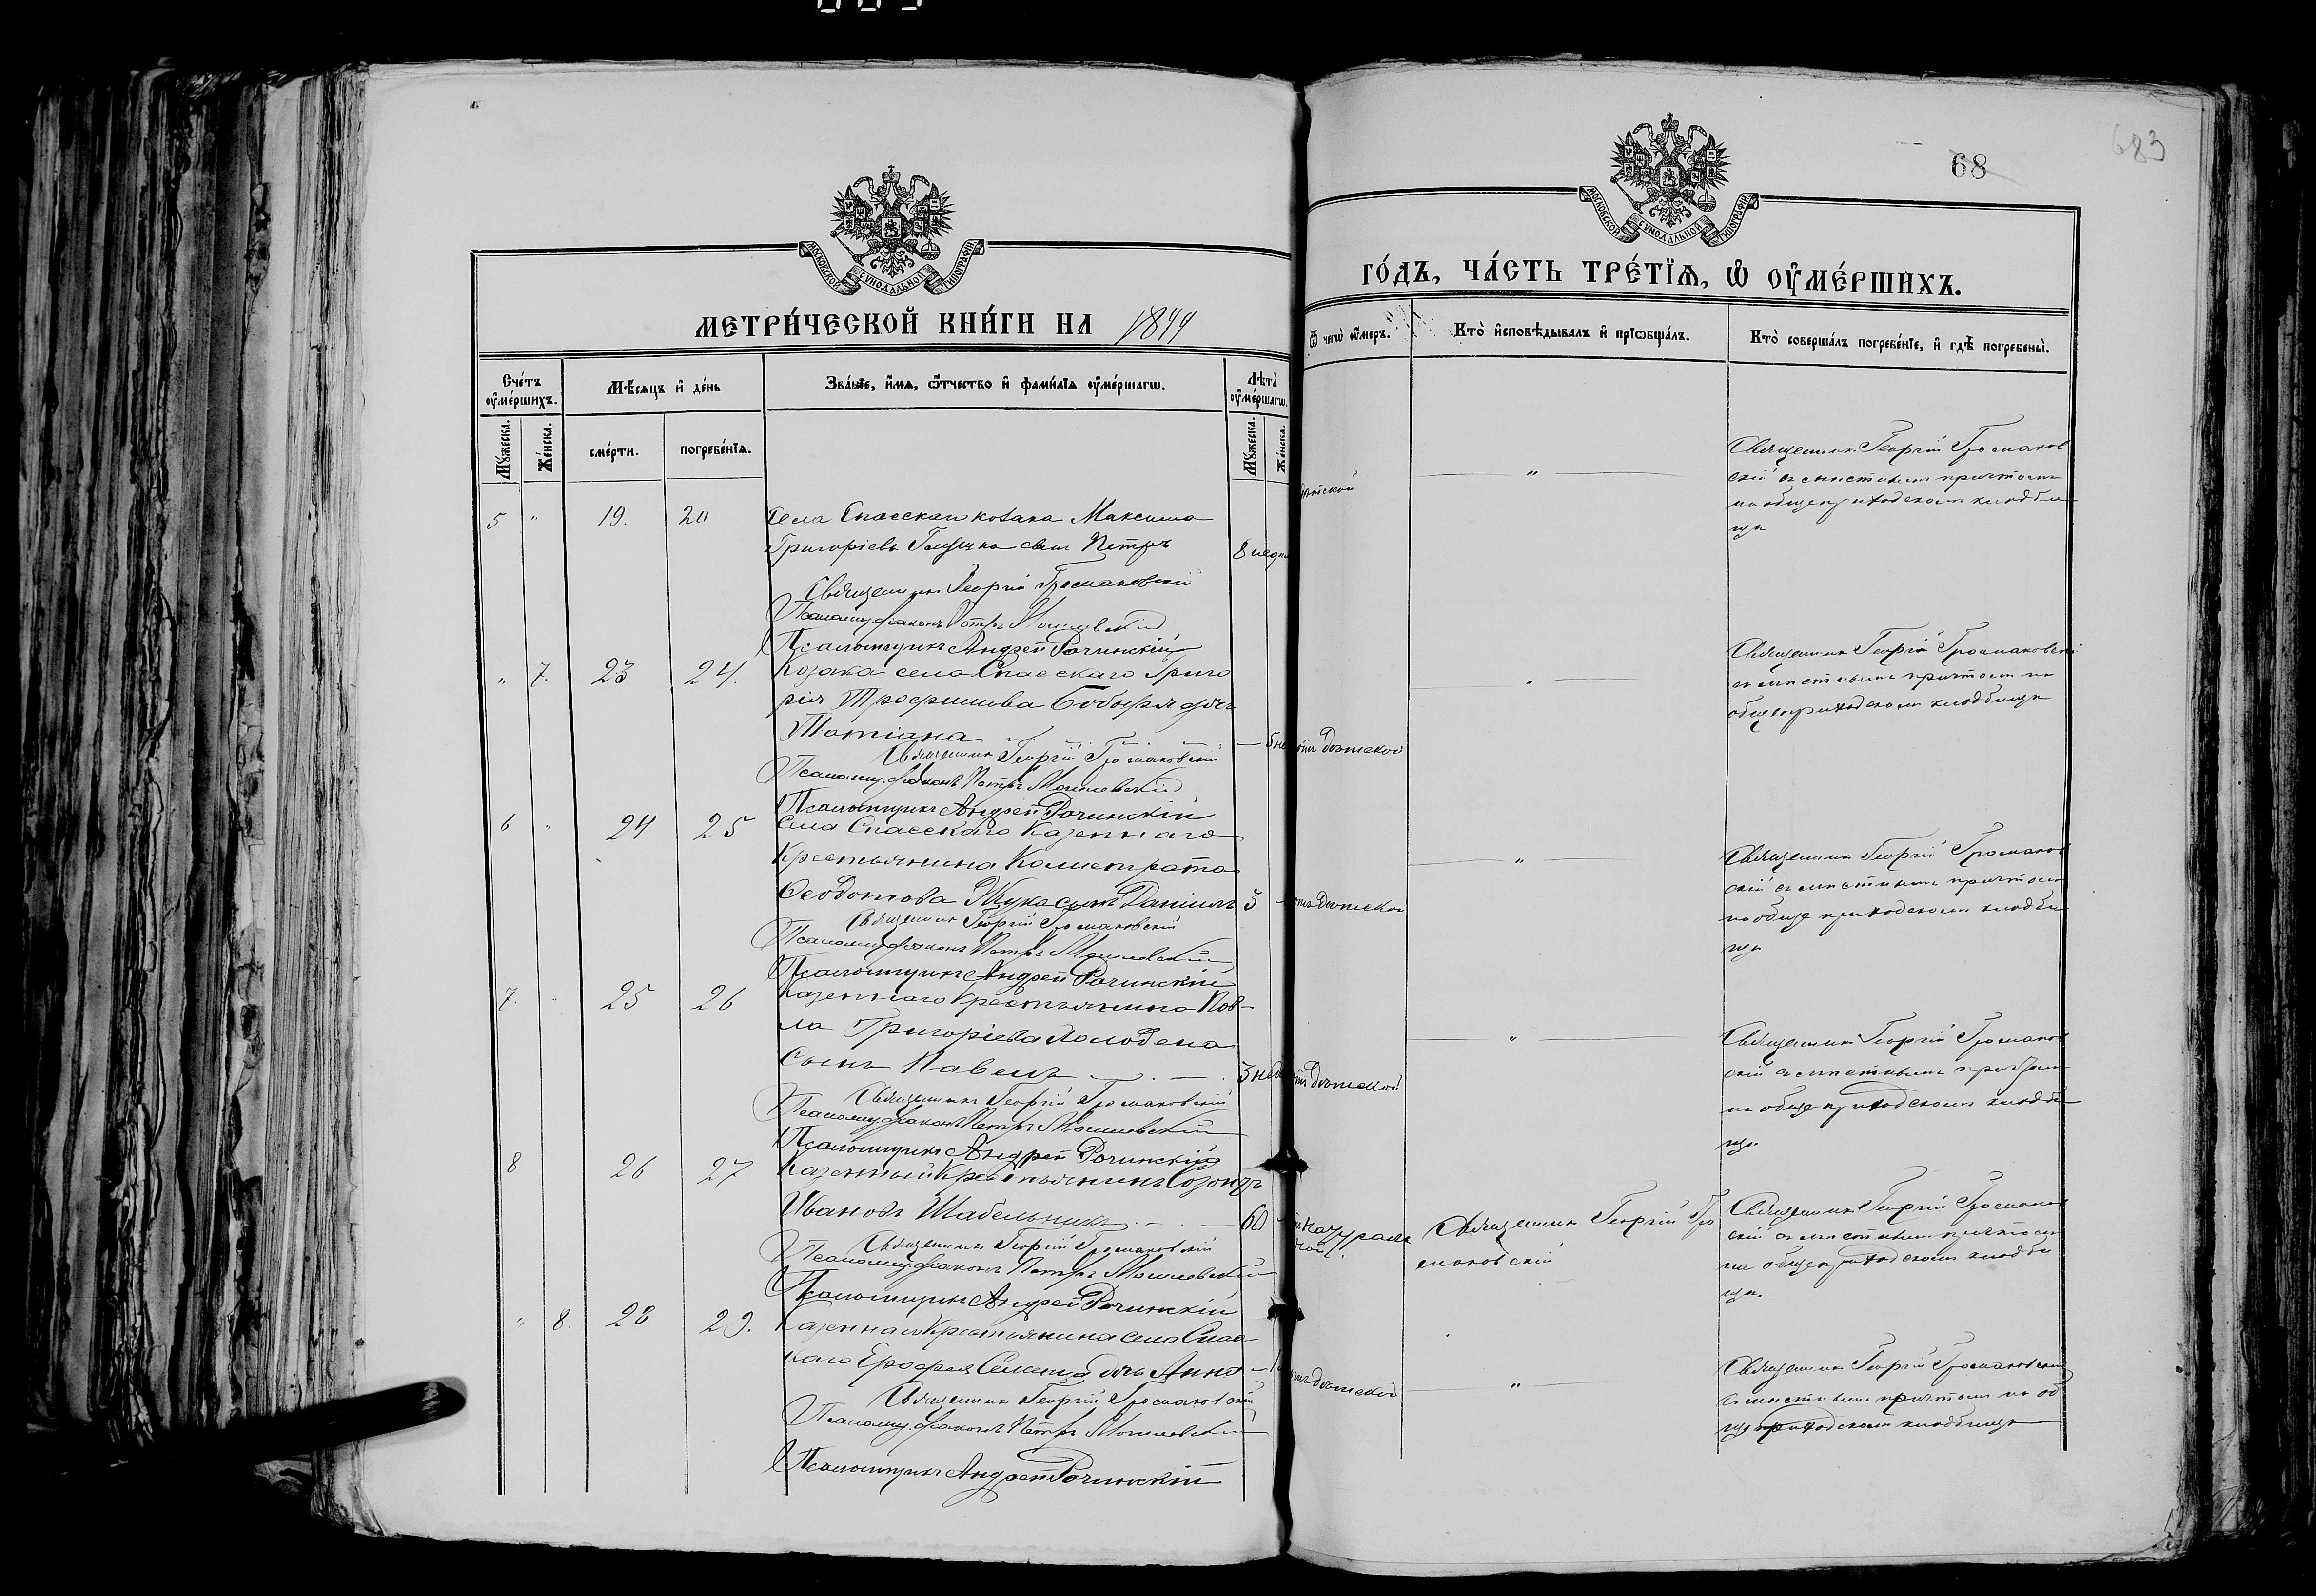 68
683
МОСКОВСКОЙ СѴНОДАЛЬНОЙ ТИПОГРАФІИ
МЕТРИ́ЧЕСКОЙ КНИ́ГИ НА
Сче́тъ ᲂу҆ме́ршихъ.
Мѣ́сяцъ и҆ де́нь
Зва́нїе, и҆́мѧ, ѻ҆́тчество и҆ фами́лїѧ ᲂу҆ме́ршагѡ.
Лѣта̀ ᲂу҆ме́ршагѡ.
Мꙋ́жеска.
Же́нска.
сме́рти.
погребе́нїѧ.
Мꙋ́жеска.
Же́нска.
5 " 19. 20 Села Спасскаго козака Максима
Григоріева сын Петръ 8 недѣ
Священникъ Георгій Гросмановскій
Псаломщ. діаконъ Петръ Могилевскій
Псаломщикъ Андрей Рочинскій
" 7. 23 24. Козака села Спасскаго Григо
рія Трофимова Бобыря дочь
Татіана — 5 не
Священникъ Георгій Гросмановскій
Псаломщ. діаконъ Петръ Могилевскій
Псаломщикъ Андрей Рочинскій
6 " 24 25 Села Спасскаго Казеннаго
Крестьянина Калистрата
Ѳеодотова Жука сынъ Даніилъ 3 -
Священникъ Георгій Гросмановскій
Псаломщ. діаконъ Петръ Могилевскій
Псаломщикъ Андрей Рочинскій
7. " 25 26 Казеннаго Крестьянина Пав-
ла Григоріева
Сынъ Павелъ 3 нед
Священникъ Георгій Гросмановскій
Псаломщ. діаконъ Петръ Могилевскій
Псаломщикъ Андрей Рочинскій
8 26 27 Казенный Крестьянинъ Созонтъ
Ивановъ Шабельникъ 60
Священникъ Георгій Гросмановскій
Псаломщ. діаконъ Петръ Могилевскій
Псаломщикъ Андрей Рочинскій
" 8. 28 29. Казеннаго Крестьянина села Спас-
каго Ерофея дочь Анна
Священникъ Георгій Гросмановскій
Псаломщ. діаконъ Петръ Могилевскій
Псаломщикъ Андрей Рочинскій
МОСКОВСКОЙ СѴНОДАЛЬНОЙ ТИПОГРАФІИ
ГО́ДЪ, ЧА́СТЬ ТРЕ́ТЇѦ, Ѡ҆ ОУ҆МЕ́РШИХЪ.
Ѿ чегѡ̀ ᲂу҆́меръ.
Кто̀ и҆сповѣ́дывалъ и҆ прїѡбща́лъ.
Кто̀ соверша́лъ погребе́нїе, и҆ гдѣ̀ погребены̀.
дѣтской " Священникъ Георгій Гросманов
скій съ мѣстнымъ причтомъ
на общеприходскомъ кладби
щѣ
отъ дѣтской Священникъ Георгій Гросмановскі
съ мѣстнымъ причтомъ на
общеприходскомъ кладбищѣ
отъ дѣтской " Священникъ Георгій Гросманов
скій съ мѣстнымъ причтомъ
на общеприходскомъ кладби
щѣ
отъ дѣтской " Священникъ Георгій Гросманов
скій съ мѣстнымъ причтомъ
на общеприходскомъ кладби
щѣ.
натураль
ной. Священникъ Георгій Гро
смановскій
Священникъ Георгій Гросманов
скій съ мѣстнымъ причтомъ
на общеприходскомъ кладби
щѣ.
отъ дѣтской " Священникъ Георгій Гросмановскій
съ мѣстнымъ причтомъ на об
щеприходскомъ кладбищѣ